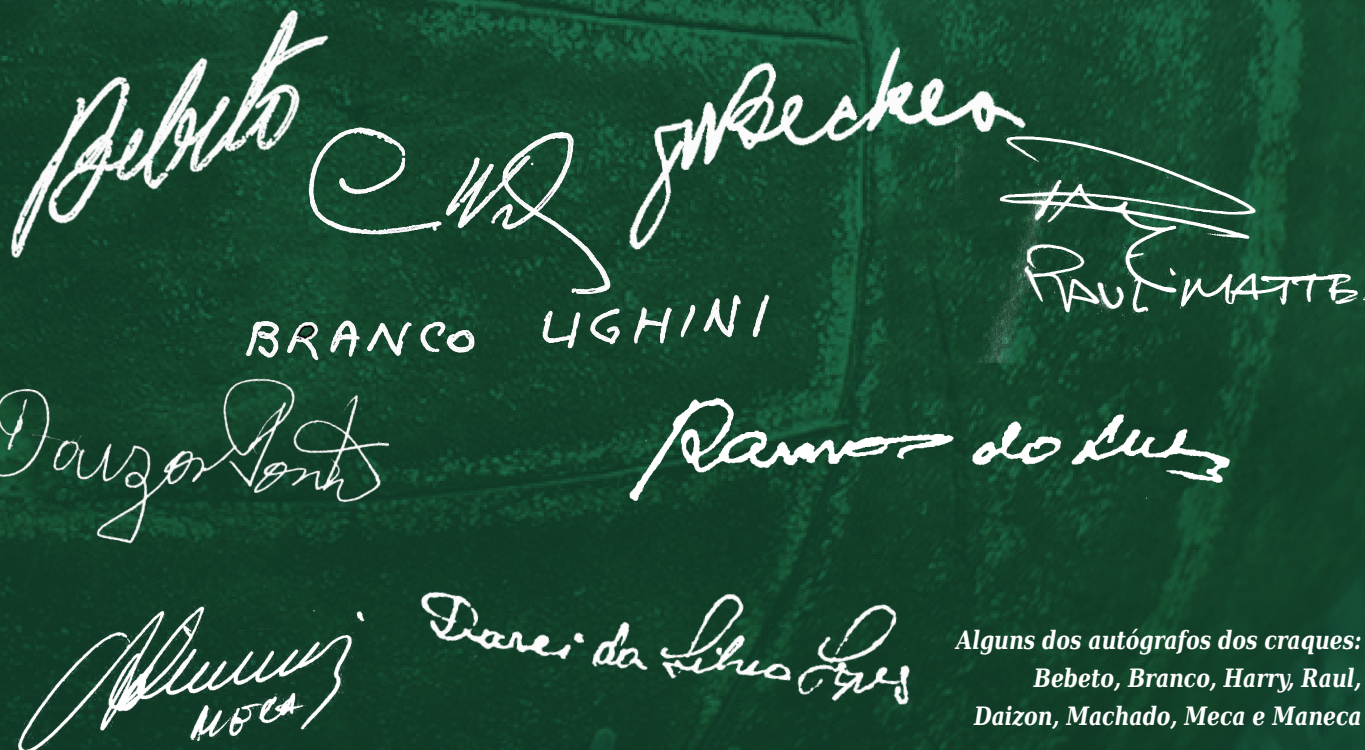 Bebeto
Becker
BRANCO UGHINI
RAUL MATTE
Daizon Pont
Ramos da Luz
MECA
Darci da Silva Lopes
Alguns dos autógrafos dos craques:
Bebeto, Branco, Harry, Raul,
Daizon, Machado, Meca e Maneca